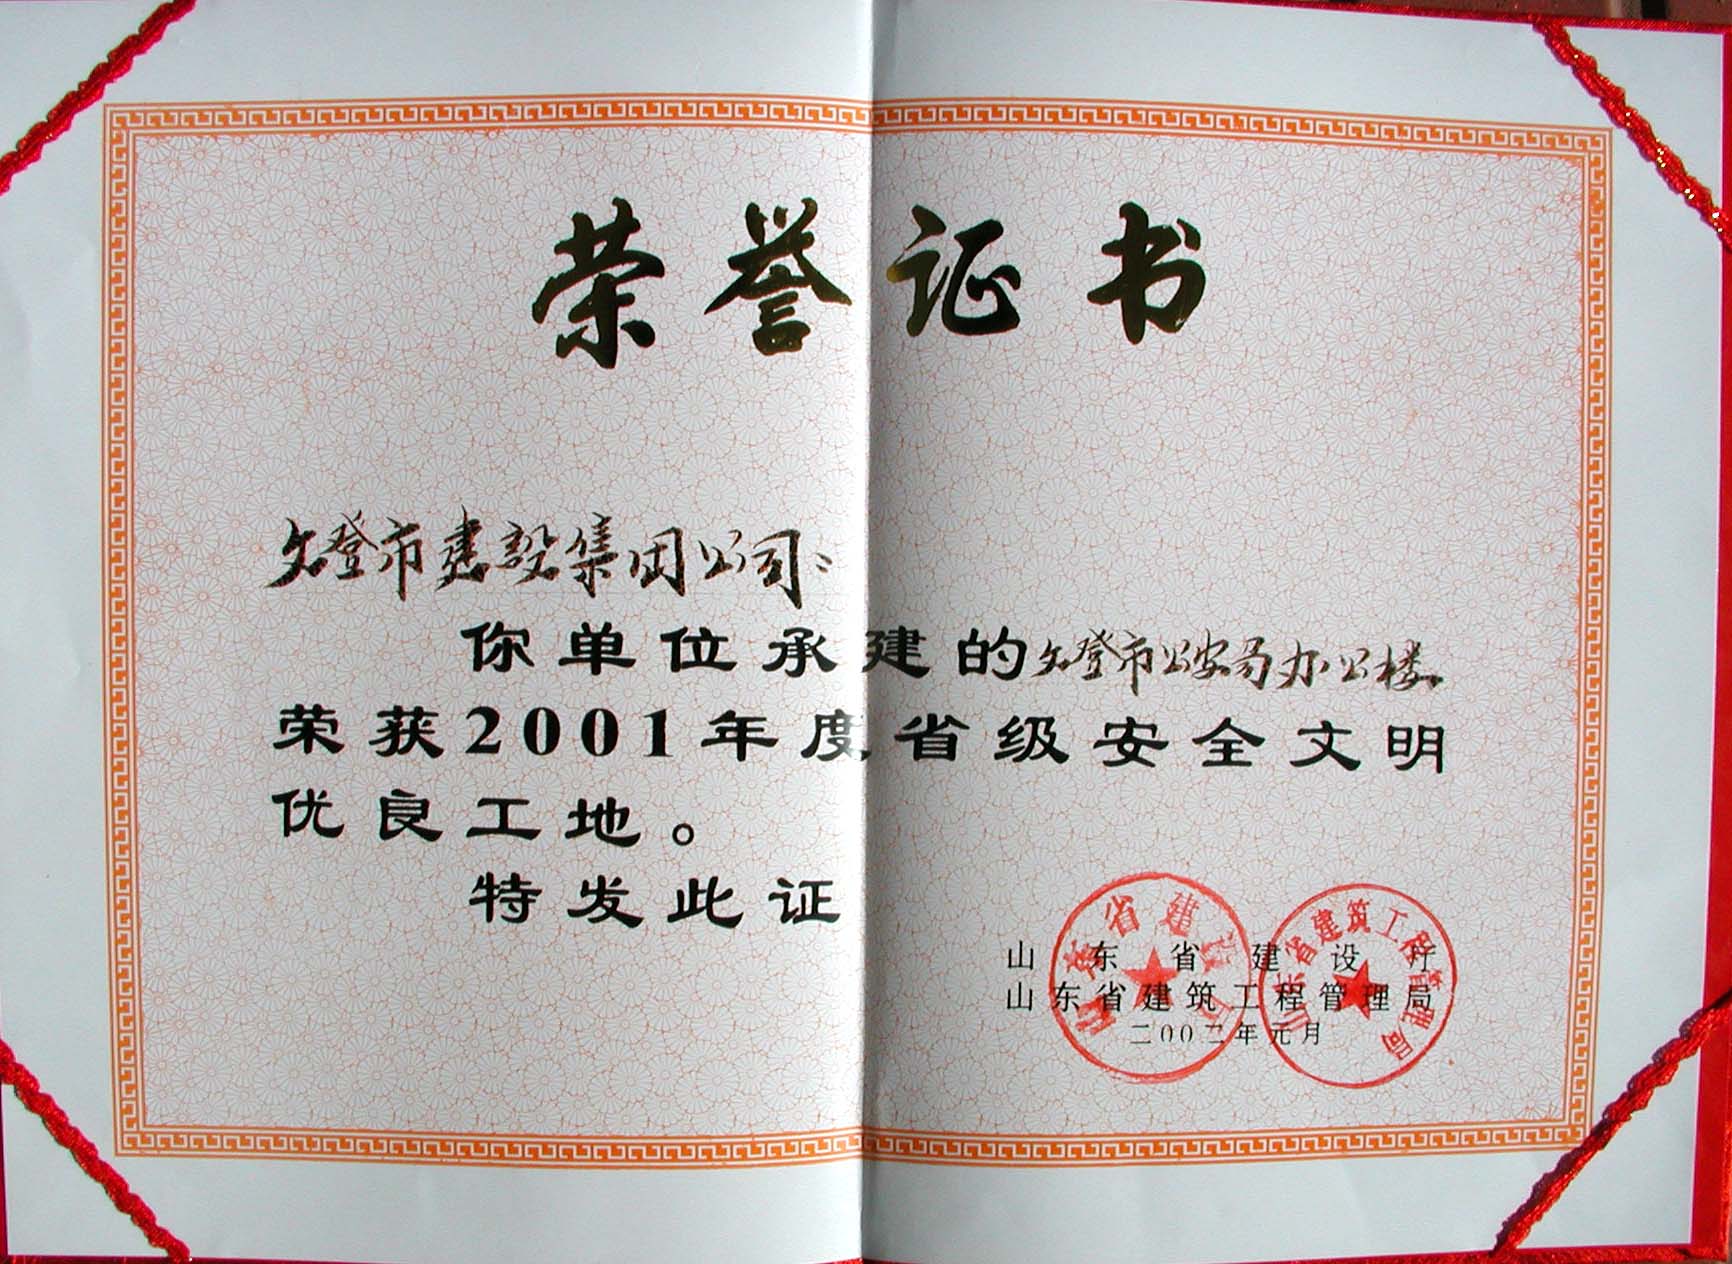 荣誉证书
文登市建设集团公司：
你单位承建的文登市公安局办公楼
荣获2001年度省级安全文明
优良工地。
特发此证
山东省建设厅
山东省建筑工程管理局
二00二年元月
山东省建设厅
山东省建筑工程管理局